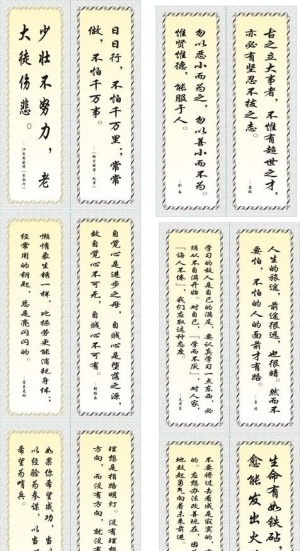 少壮不努力，老
大徒伤悲。
日日行，不怕千万里；常常
做，不怕千万事。
勿以恶小而为之，勿以善小而不为。
惟贤惟德，能服于人。
古之立大事者，不惟有超世之才，
亦必有坚忍不拔之志。
懒惰象生锈一样，比操劳更能消耗身体；
经常用的钥匙，总是亮闪闪的。
自觉心是进步之母，自贱心是堕落之源，
故自觉心不可无，自贱心不可有。
学习的敌人是自己的满足，要认真学习一点东西，必
须从不自满开始。对自己，“学而不厌”，对人家，
“诲人不倦”，我们应取这种态度。
人生的旅途，前途很远，也很暗。然而不
要怕，不怕的人的面前才有路。
如果你希望成功，当以
以经验为参谋，以当
希望为哨兵。
理想是指路明灯。没有理想
方向，而没有方向，就没有
不要慨过去看成是寂寞的，
的，应想办法改善现在，因
地鼓起勇气向着未来前进
生命有如铁砧，
愈能发出火